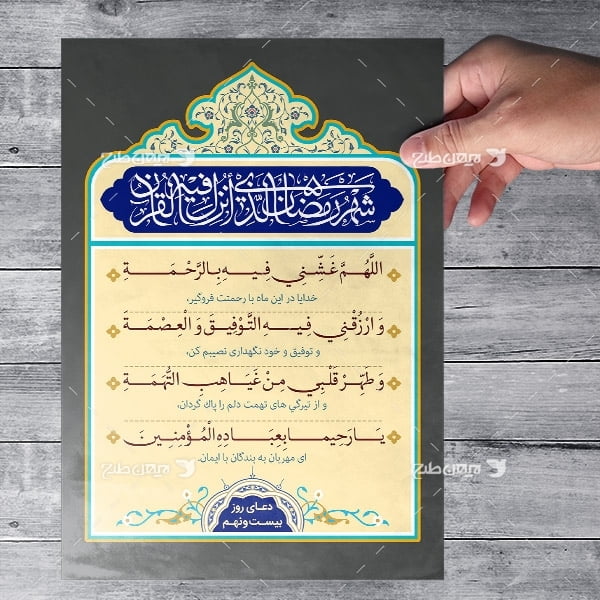 شَهْرُ رَمَضَانَ الَّذِي أُنْزِلَ فِيهِ الْقُرْآنُ
اللَّهُمَّ غَشِّنِي فِيهِ بِالرَّحْمَةِ
خدایا در این ماه با رحمتت فروگیر،
وَ ارْزُقْنِي فِيهِ التَّوْفِيقَ وَ الْعِصْمَةَ
و توفیق و خود نگهداری نصیبم کن،
وَ طَهِّرْ قَلْبِي مِنْ غَيَاهِبِ التُّهَمَةِ
و از تیرگی های تهمت دلم را پاک گردان،
يَا رَحِيما بِعِبَادِهِ الْمُؤْمِنِينَ
ای مهربان به بندگان با ایمان.
دعای روز
بیست و نهم
میهن طرح
میهن طرح
میهن طرح
میهن طرح